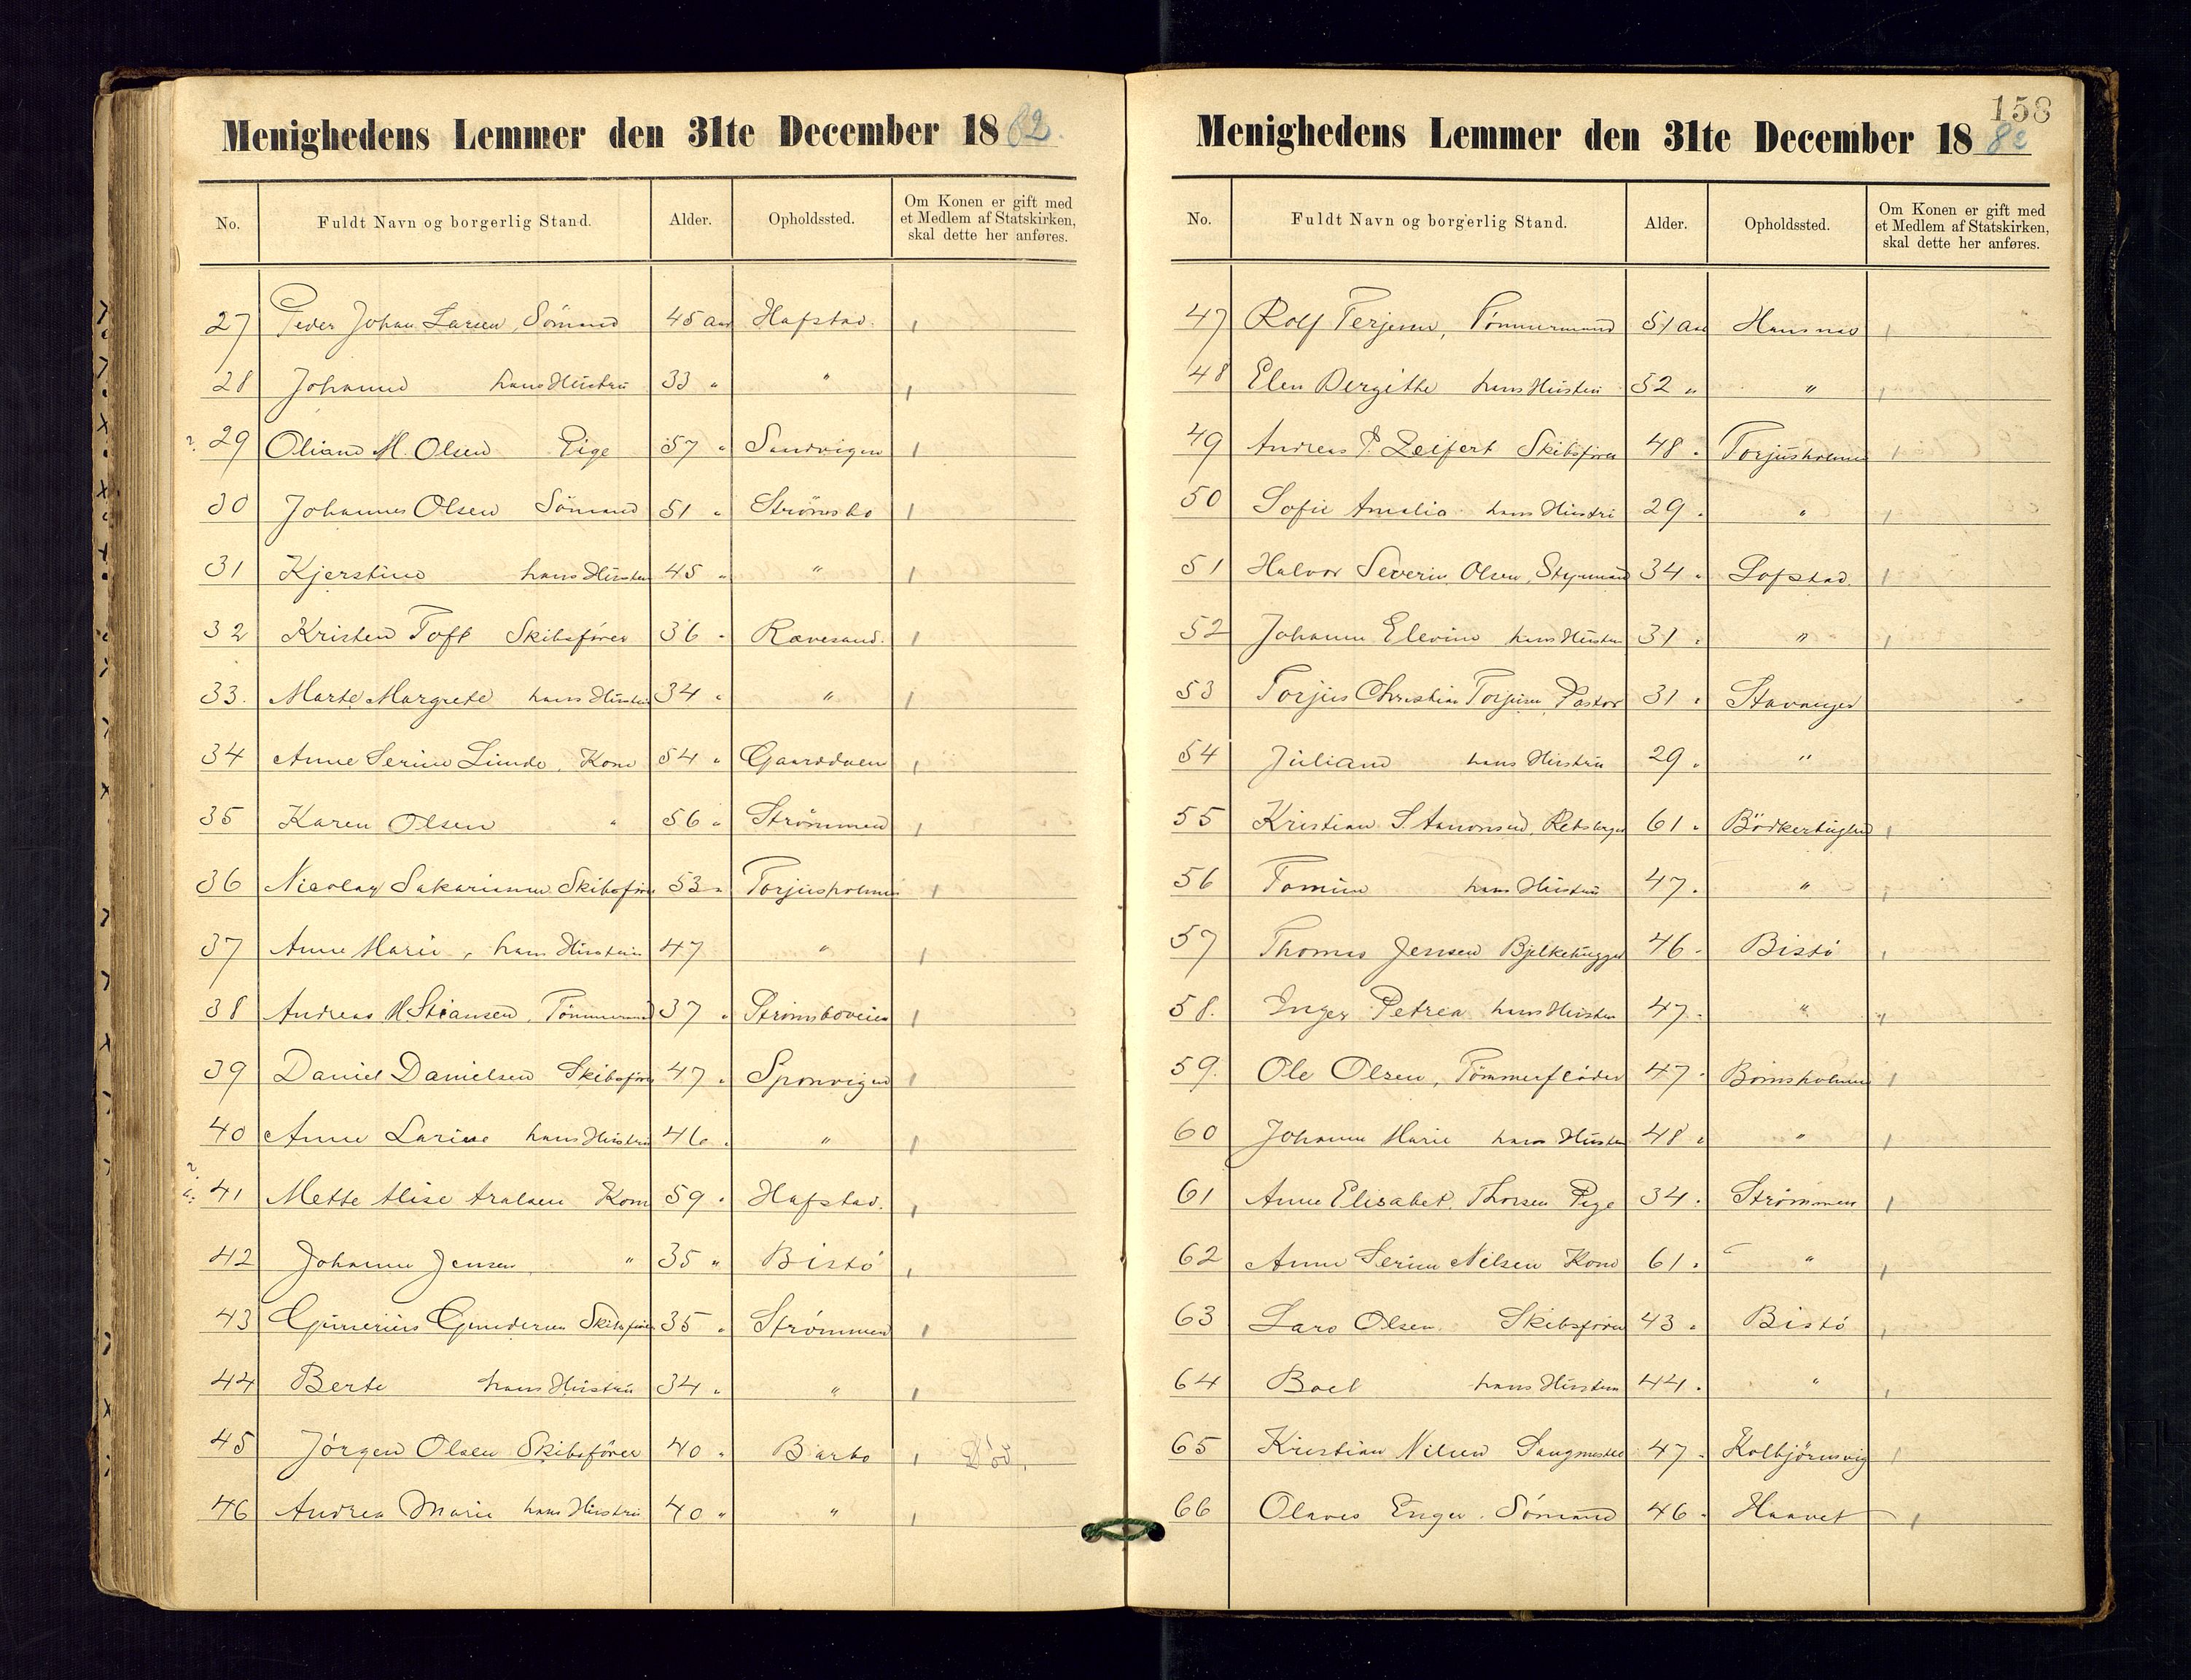 Menighedens Lemmer den 31te December 1882.
No. Fuldt Navn og borgerlig Stand. Alder. Opholdssted. Om Konen er gift med et Medlem af Statskirken, skal dette her anføres.
27 Peder Johan Larsen, Sömand 45 aar Hafstad.
28 Johanne hans Hustru 33 " "
29 Oliane M. Olsen Pige 57 " Sandvigen
30 Johannes Olsen Sömand 51 " Strömsbo
31 Kjerstine hans Hustru 45 " "
32 Kristen Toft Skibsförer 36 " Ravesand.
33. Marte Margrete hans Hustru 34 " "
34 Anne Serine Lunde, Kone 54 "
35 Karen Olsen " 56 " Strömmen
36 Nicolay Sakariasen Skibsförer 53 " Torjusholmen
37 Anne Marie, hans Hustru 47 "
38 Andreas M Stiansen, Tömmermand 37 " Strömsboveien
39 Daniel Danielsen Skibsförer 47 " Sponvigen
40 Anne Larine hans Hustru 46 " "
41 Mette Elise Kone 59 " Hafstad.
42 Johanne Jensen " 35 " Bistö
43 Gunerius Gundersen Skibsförer 35 " Strömmen
44 Berte hans Hustru 34 " "
45 Jörgen Olsen Skibsförer 40 " Barbo Död.
46 Andrea Marie hans Hustru 40 " "
158
Menighedens Lemmer den 31te December 1882
No. Fuldt Navn og borgerlig Stand. Alder. Opholdssted. Om Konen er gift med et Medlem af Statskirken, skal dette her anføres.
47 Rolf Terjesen, Tömmermand 51 aar Hausnes
48 Elen Bergitte hans Hustru 52 " "
49 Andreas P. Zeifert Skibsförer 48 " Torjusholmen
50 Sofie Amalia hans Hustru 29 " "
51 Halvor Severin Olsen, Styrmand 34 " Lofstad.
52 Johanne Elevine hans Hustru 31 " "
53 Torjus Christian Torjusen, Pastor 31 " Stavanger
54 Juliane hans Hustru 29 " "
55 Kristian S. Aanonsen, 61 "
56 Tomine hans Hustru 47 " "
57 Thomas Jensen Bjelkehugger 46 " Bistö
58. Inger Petrea hans Hustru 47 " "
59. Ole Olsen, Tömmerflöder 47 " Bomsholmen
60 Johanne Marie hans Hustru 48 " "
61 Anne Elisabet Thorsen Pige 34 " Strömmen
62 Anne Serine Nilsen Kone 61 " "
63 Lars Olsen Skibsförer 43 " Bistö
64 Boel hans Hustru 44 " "
65 Kristian Nilsen Saugmester 47 " Kolbjörnsvig
66 Olaves Enger. Sömand 46 " Haavet